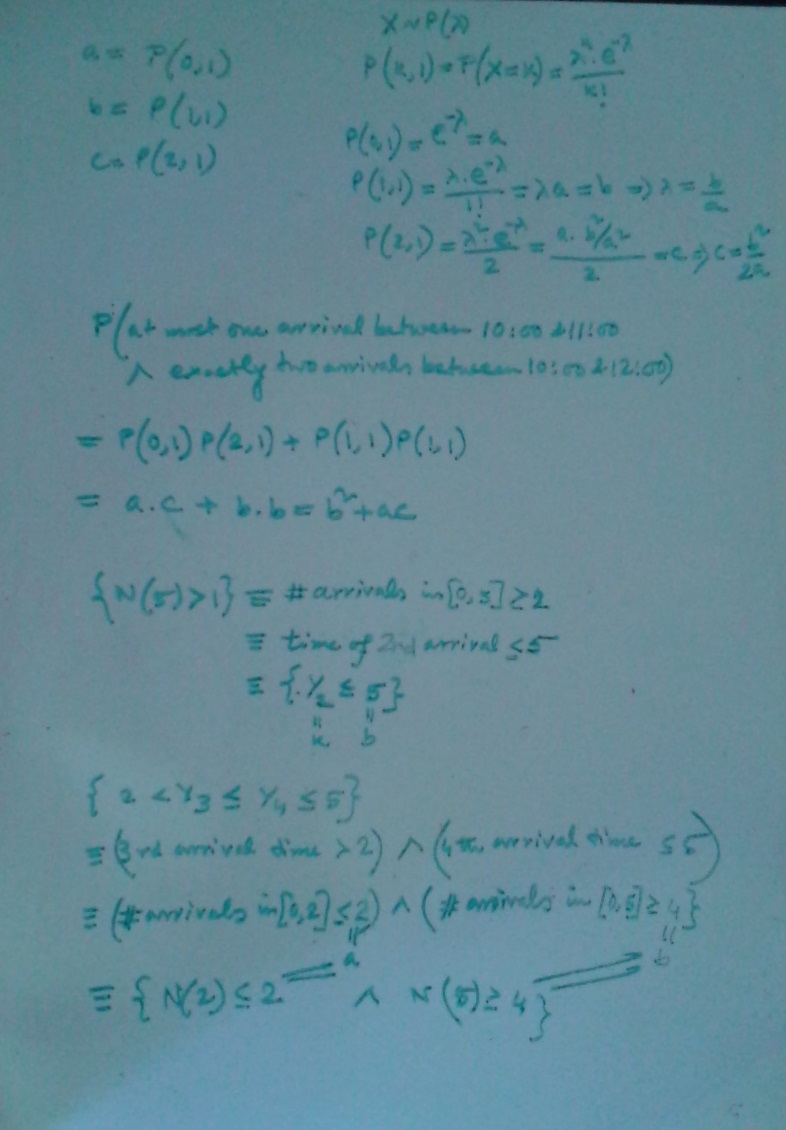 X ~ P(λ)
a = P(0,1)
P(k,1) = P(X=k) = λᵏ.e^-λ / k!
b = P(1,1)
c = P(2,1)
P(0,1) = e^-λ = a
P(1,1) = λ.e^-λ / 1! = λa = b => λ = b/a
P(2,1) = λ².e^-λ / 2 = a. b²/a² / 2 = c => c = b²/2a
P(at most one arrival between 10:00 & 11:00
∧ exactly two arrivals between 10:00 & 12:00)
= P(0,1) P(2,1) + P(1,1) P(1,1)
= a.c + b.b = b² + ac
{N(5)>1} ≡ # arrivals in [0,5] ≥ 2
≡ time of 2nd arrival ≤ 5
≡ {Y₂ ≤ 5}
k b
{2 < Y₃ ≤ Y₄ ≤ 5}
≡ (3rd arrival time > 2) ∧ (4th arrival time ≤ 5)
≡ (# arrivals in [0,2] ≤ 2) ∧ (# arrivals in [0,5] ≥ 4}
a b
≡ {N(2) ≤ 2 ∧ N(5) ≥ 4}